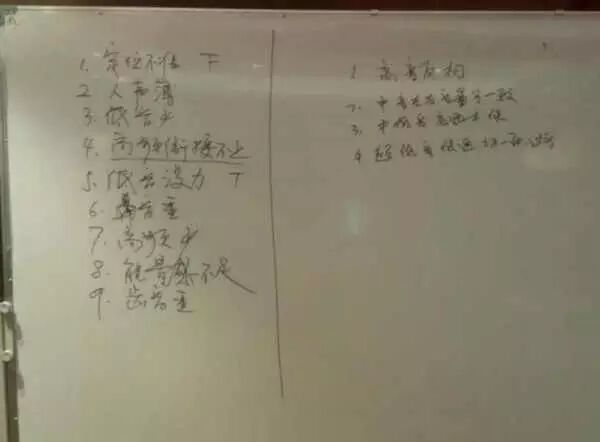 1. 定位不准 T
2 人声薄
3. 低音少
4. 高频衔接不上
5. 低音没力 T
6. 鼻音重
7. 高频少
8. 能量感不足
9. 齿音重
1 高音反相
2. 中音左右音量不一致
3. 中低音
4 超低音低通